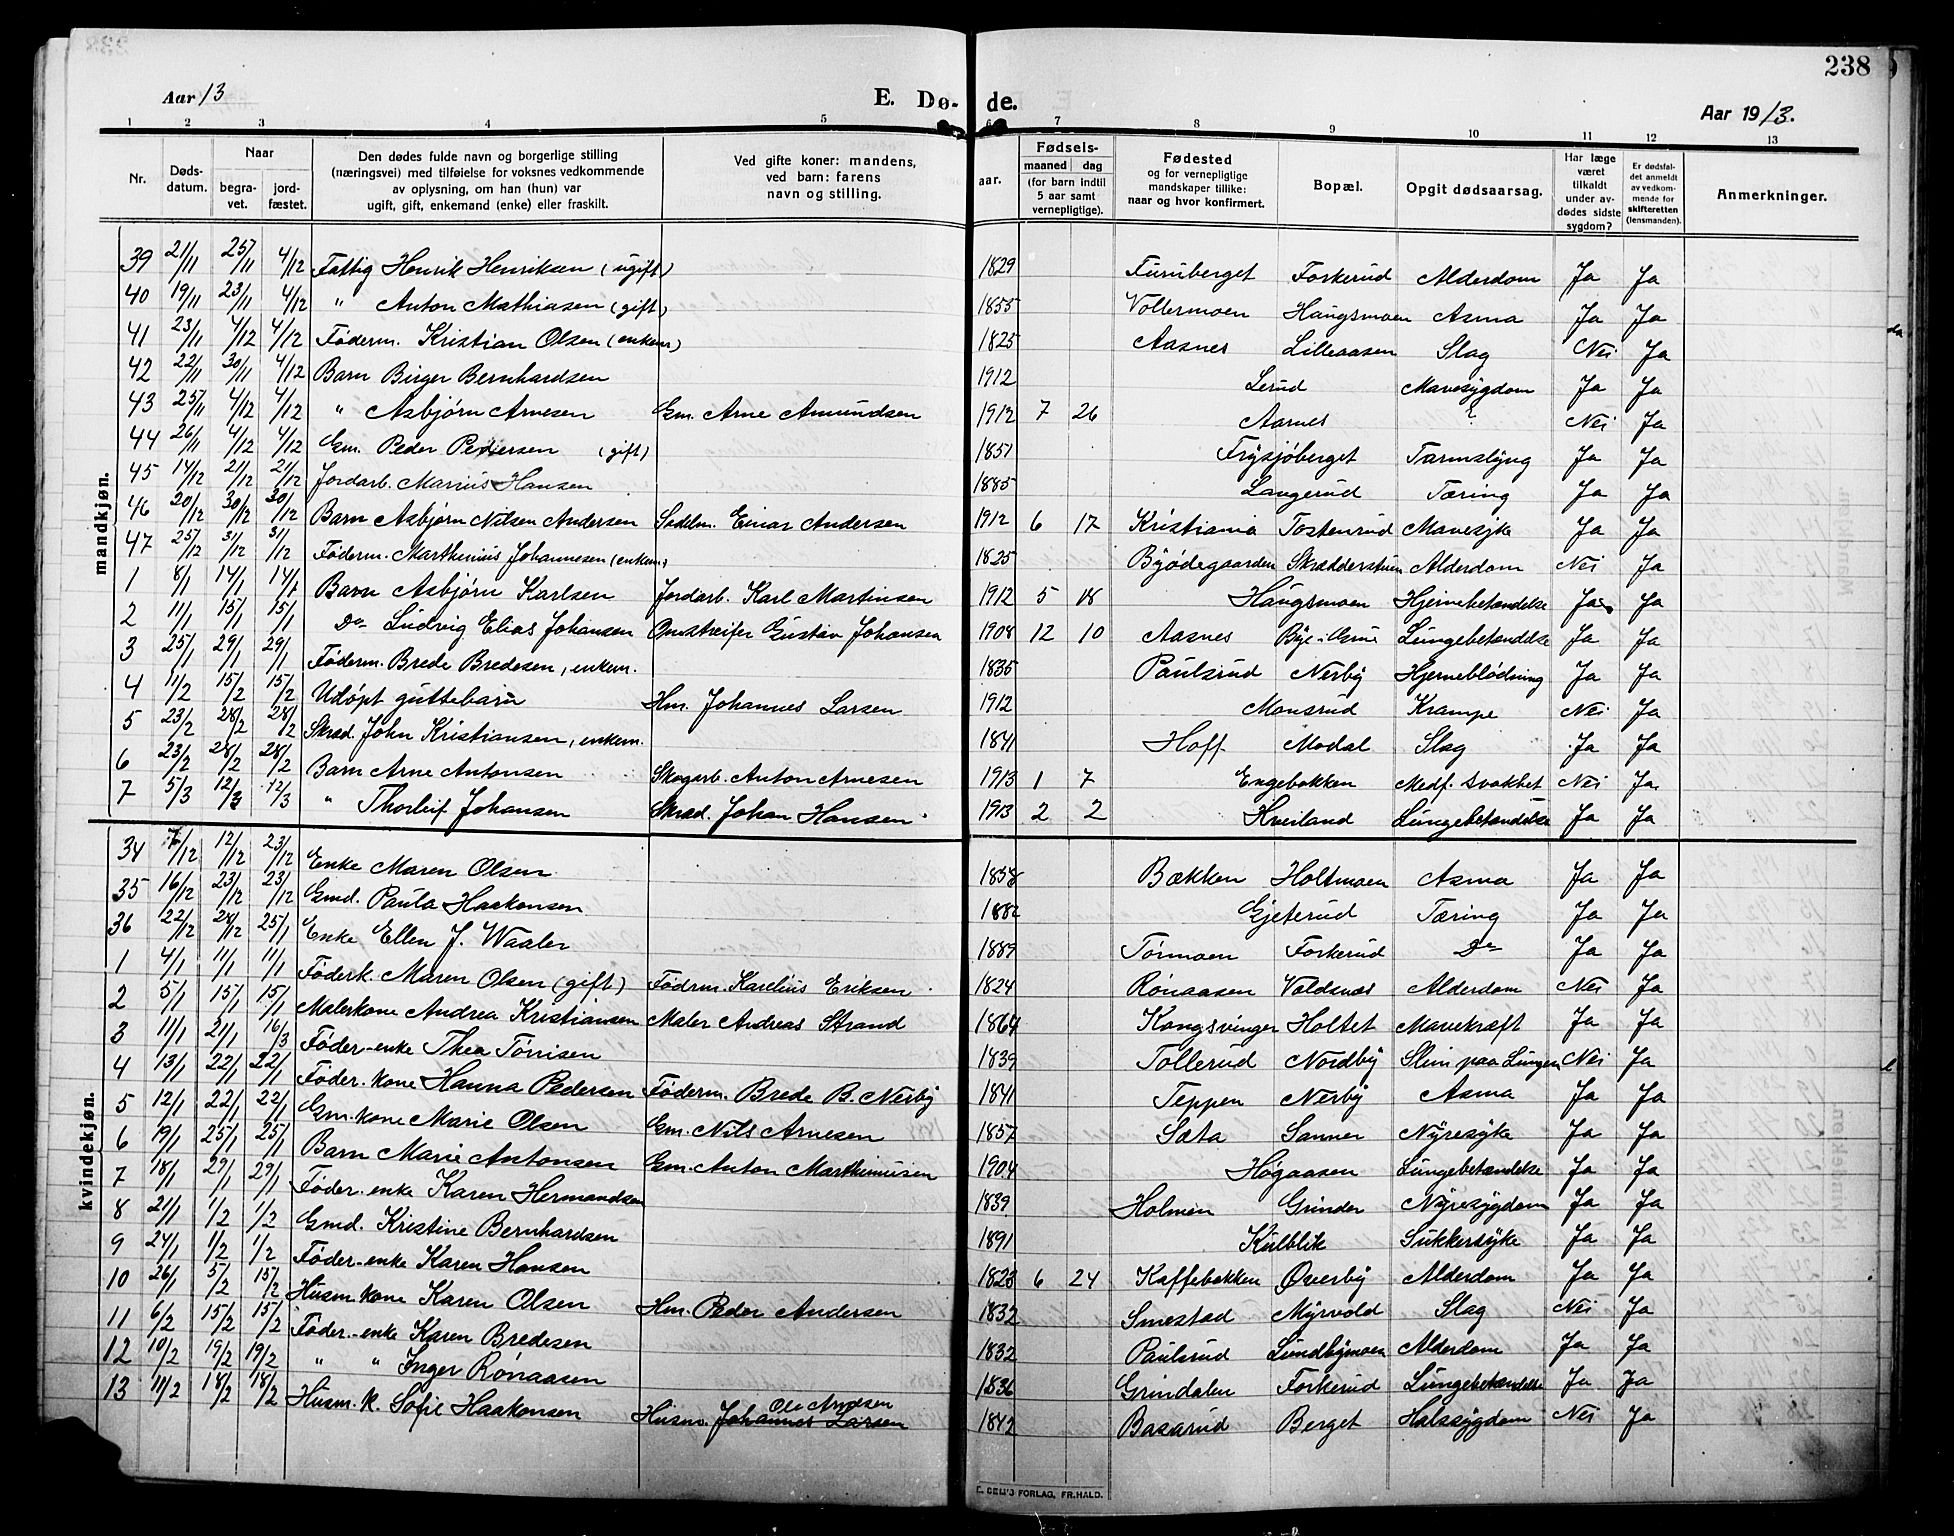 238
Aar 13
E. Dø- de.
Aar 1913.
1 2 3 4 5 6 7 8 9 10 11 12 13
Nr. Døds-datum. Naar begra-vet. jord-fæstet. Den dødes fulde navn og borgerlige stilling (næringsvei) med tilføielse for voksnes vedkommende av oplysning, om han (hun) var ugift, gift, enkemand (enke) eller fraskilt. Ved gifte koner: mandens, ved barn: farens navn og stilling. aar. Fødsels- maaned dag (for barn indtil 5 aar samt vernepligtige). Fødested og for vernepligtige mandskaper tillike: naar og hvor konfirmert. Bopæl. Opgit dødsaarsag. Har læge været tilkaldt under av-dødes sidste sygdom? Er dødsfal-det anmeldt av vedkom-mende for skifteretten (lensmanden). Anmerkninger.
mandkjøn.
39 21/11 25/11 4/12 Fattig Henrik Henriksen (ugift) 1829 Furuberget Forkerud Alderdom Ja Ja
40 19/11 23/11 4/12 " Anton Mathiasen (gift) 1855 Vollermoen Haugsmoen Asma Ja Ja
41 23/11 4/12 4/12 Føderm. Kristian Olsen (enkem) 1825 Aasnes Lilleaasen Slag Nei Ja
42 22/11 30/11 4/12 Barn Birger Bernhardsen 1912 Lerud Mavesygdom Ja Ja
43 25/11 4/12 4/12 " Asbjørn Arnesen Gm. Arne Amundsen 1912 7 26 Aarnes ? Nei Ja
44 26/11 4/12 4/12 Gm. Peder Pedersen (gift) 1851 Frysjøberget Tarmslyng Ja Ja
45 14/12 21/12 21/12 Jordarb. Marius Hansen 1885 Langerud Tæring Ja Ja
46 20/12 30/12 30/12 Barn Asbjørn Nilsen Andersen Sadelm. Einar Andersen 1912 6 17 Kristiania Tostenrud Mavesyke Ja Ja
47 25/12 31/12 31/12 Føderm. Marthinius Johannesen (enkem) 1825 Byødegaarden Skrædderstuen Alderdom Nei Ja
1 8/1 14/1 14/1 Barn Asbjørn Karlsen Jordarb. Karl Martinsen 1912 5 18 Haugsmoen Hjernebetændelse Ja Ja
2 11/1 15/1 15/1 Do Ludvig Elias Johansen Omstreifer Gustav Johansen 1908 12 10 Aasnes Lungebetændelse Ja Ja
3 25/1 29/1 29/1 Føderm. Brede Bredesen, enkem. 1835 Paulsrud Nerby Hjerneblødning Ja Ja
4 11/2 15/2 15/2 Udøpt guttebarn Hm. Johannes Larsen 1912 Monsrud Krampe Nei Ja
5 23/2 28/2 28/2 Skræd. John Kristiansen, enkem. 1841 Hoff Modal Slag Ja Ja
6 23/2 28/2 28/2 Barn Arne Antonsen Skogarb. Anton Arnesen 1913 1 7 Engebakken Medf. svakhet Nei Ja.
7 5/3 12/3 12/3 " Thorleif Johansen Skræd. Johan Hansen 1913 2 2 Kveiland Lungebetændelse Ja Ja
kvindekjøn.
34 7/12 12/12 23/12 Enke Maren Olsen 1858 Bækken Holtmoen Asma Ja Ja
35 16/12 23/12 23/12 Gmd. Paula Haakonsen 1882 Gjeterud Tæring Ja Ja
36 22/12 28/12 25/1 Enke Ellen J. Waaler 1889 Tørmoen Forkerud Do Ja Ja
1 4/1 11/1 11/1 Føderk. Maren Olsen (gift) Fødrm. Karelius Eriksen 1824 Rønaasen Voldsnæs Alderdom Nei Ja
2 5/1 15/1 15/1 Malerkone Andrea Kristiansen Maler Andreas Strand 1864 Kongsvinger Holtet Mavekræft Ja Ja
3 11/1 21/1 16/3 Føder-enke Thea Tørrisen 1839 Tollerud Nordby Slim paa Lungen Nei Ja
4 13/1 22/1 22/1 Føder. kone Hanna Pedersen Føderm. Brede B. Nerby 1841 Teppen Nerby Asma Ja Ja
5 12/1 22/1 22/1 Gm. kone Marie Olsen Gm. Nils Arnesen 1857 Sæta Sanner Nyresyke Ja Ja
6 19/1 25/1 25/1 Barn Marie Antonsen Gm. Anton Marthinusen 1904 Høgaasen Lungebetændelse Ja Ja
7 18/1 29/1 29/1 Føder-enke Karen Hermandsen 1839 Holmen Grinder Nyresygdom Ja Ja
8 21/1 1/2 1/2 Gmd. Kristine Bernhardsen 1891 Kulblik Sukkersyke Ja Ja
9 24/1 1/2 1/2 Føder-enke Karen Hansen 1823 6 24 Kaffebakken Overby Alderdom Ja Ja
10 26/1 5/2 15/2 Husm kone Karen Olsen Hm. Peder Andersen 1832 Smestad Myrvold Slag Nei Ja
11 6/2 15/2 15/2 Føder-enke Karen Bredesen 1832 Paulsrud Lundbymoen Alderdom Ja Ja
12 10/2 19/2 19/2 " " Inger Rønaasen 1836 Grindalen Forkerud Lungebetændelse Ja Ja
13 11/2 18/2 18/2 Husm. k. Sofie Haakonsen Husm. Johannes Larsen Ole Amdsen 1842 Basarud Berget Halssygdom Nei Ja
E. SEM'S FORLAG, FR.HALD.